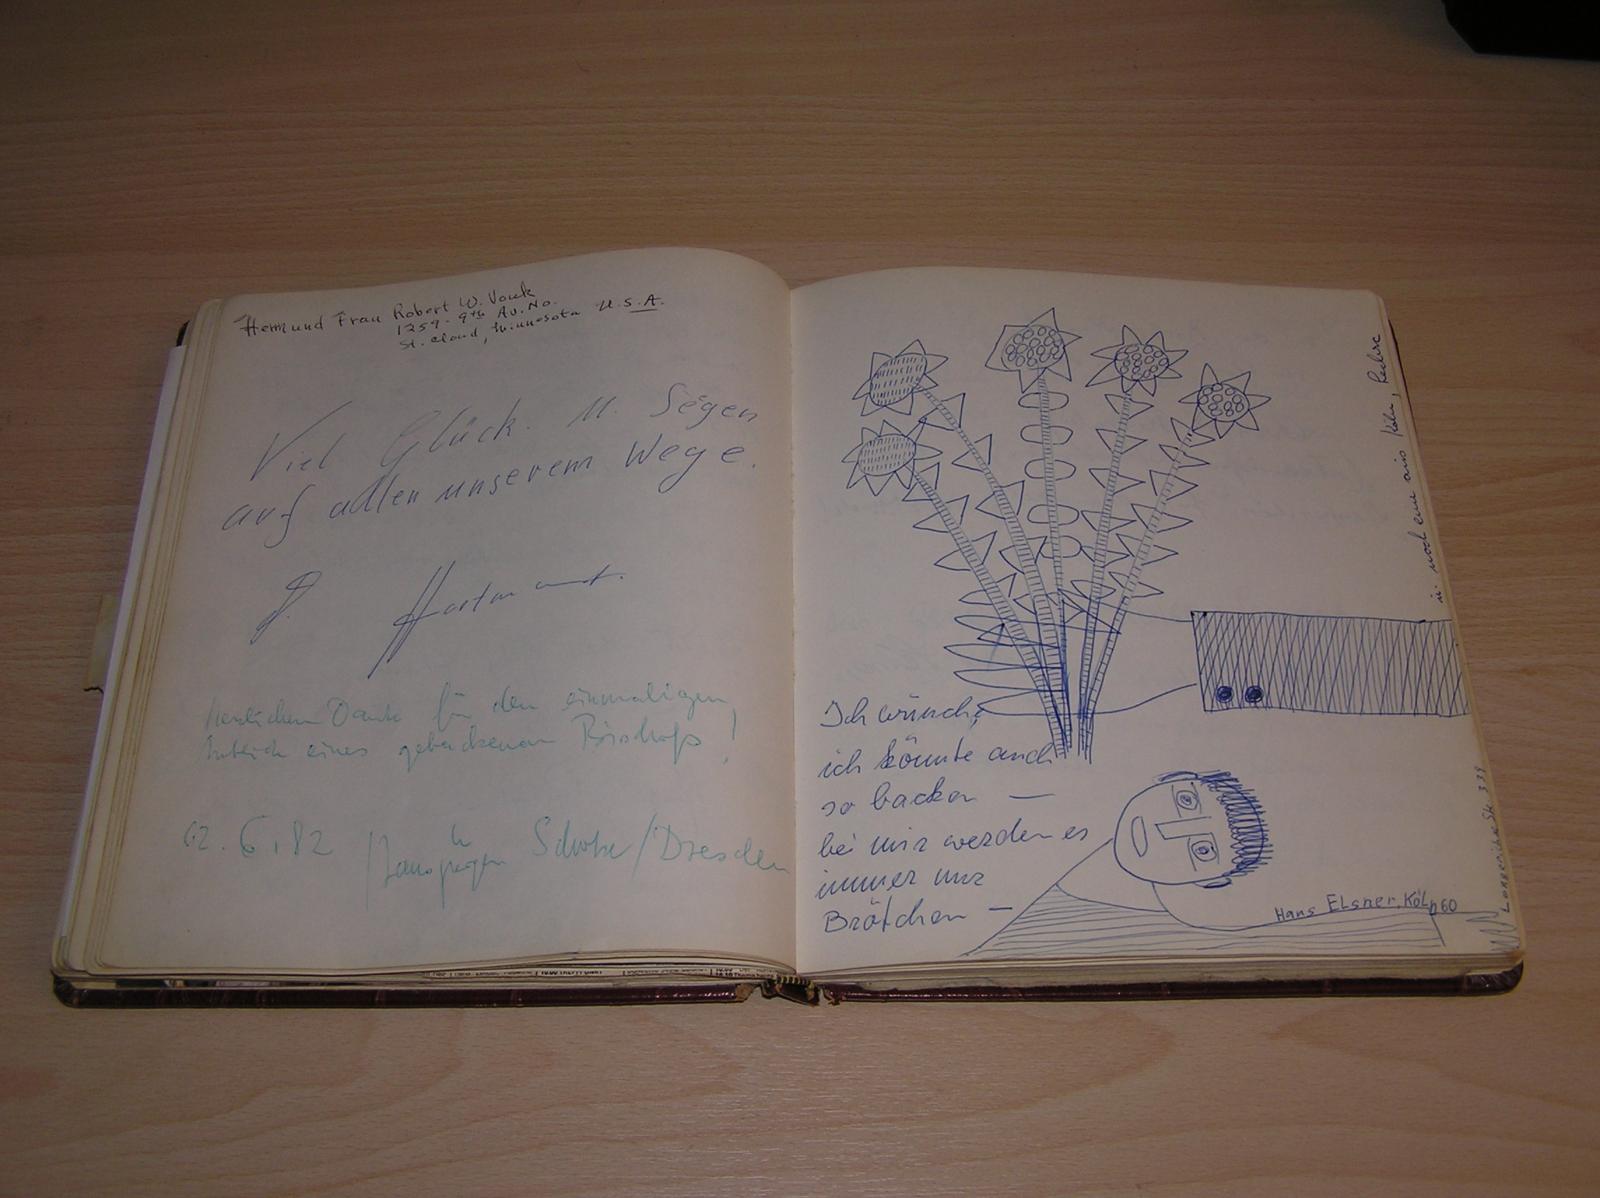 Herrn und Frau Robert W. Vouk
1259 - 9th Av. No.
St. Cloud, Minnesota U.S.A.
Viel Glück u. Segen
auf allen unserem Wege.
Herzlichen Dank für den einmaligen
eines gebackenen Bischofs!
02.6.82
/Dresden
Ich wünsch,
ich könnte auch
so backen —
bei mir werden es
immer nur
Brötchen —
Hans Elsner, Köln 60
u. noch eine aus Köln,
Str. 339